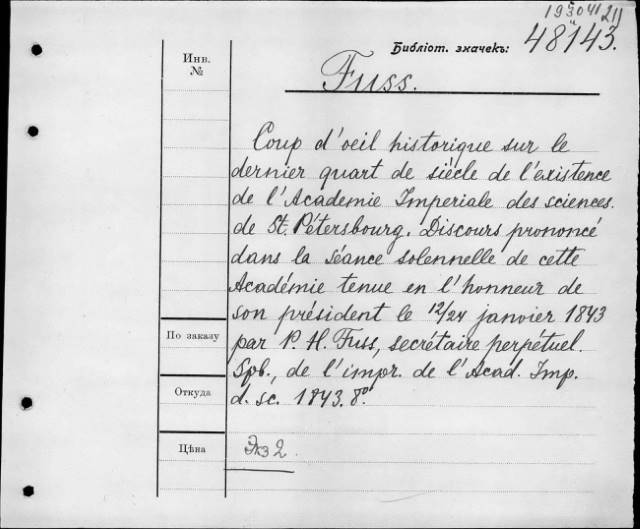 Библіот. значекъ:
48143.
Инв.
№
Fuss.
Coup d'oeil historique sur le
dernier quart de siècle de l'existence
de l'Academie Imperiale des sciences.
de St. Pétersbourg. Discours prononcé
dans la séance solennelle de cette
Académie tenue en l'honneur de
son président le 12/24 janvier 1843
par P. H. Fuss, secrétaire perpétuel.
Spb., de l'impr. de l'Acad. Imp.
d. sc. 1843. 8º.
По заказу
Откуда
Цѣна
Экз 2